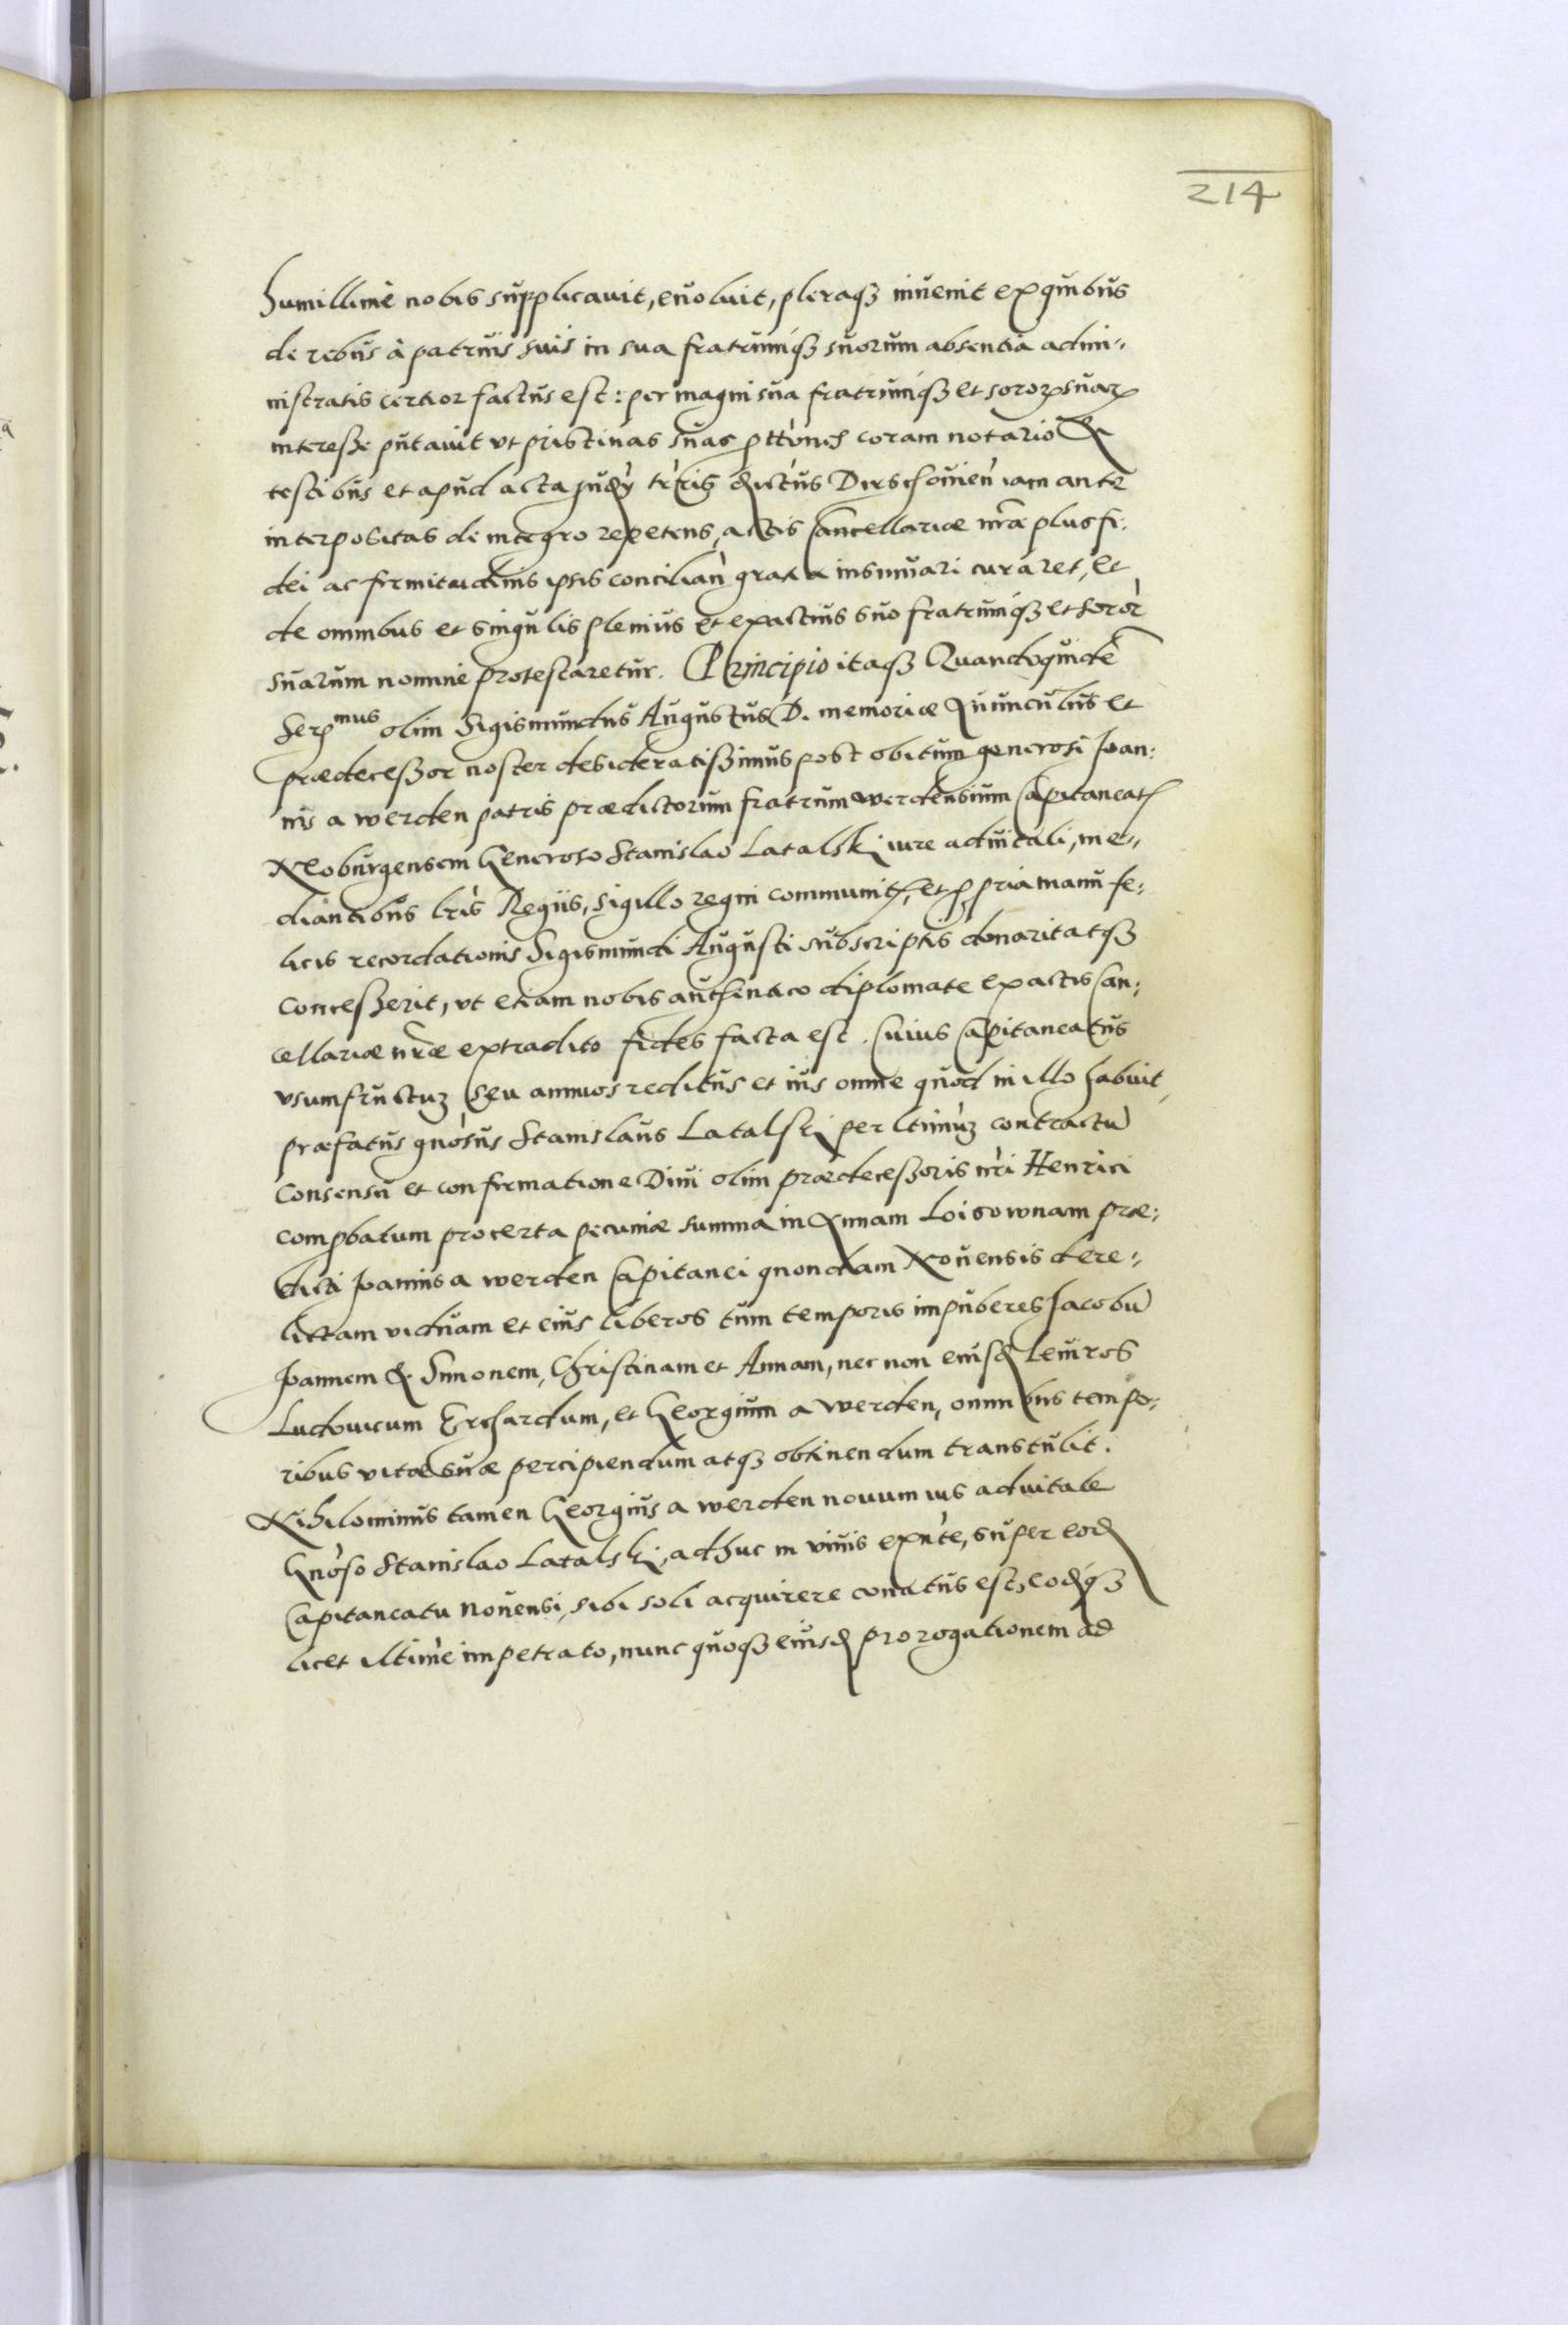 214
humillimè nobis supplicavit, evoluit, pleraqꝫ invenit ex quibus
de rebus à patruis suis in sua fratrumqꝫ suorum absentia admi-
nistratis certior factus est: per magni sua fratrumqꝫ et soroꝝ suaꝝ
interesse putavit vt pristinas suas ꝓtt̀ones coram notario &
testibus et apud acta Dirschovien̄ iam ante
interpositas de integro repetens, actis Cancellariæ nr̄æ plus fi-
dei ac firmitudinis ipsis conciliañ gratia insinuari curaret, et
de omnibus et singulis plenius et exactius suo fratrumqꝫ et soror̀
suarum nomine protestaretur. Principio itaqꝫ Quandoquidē
Serᵐᵘˢ olim Sigismundus Augustus D. memoriæ Avunculus et
prædecessor noster desideratissimus post obitum generosi Joan-
nis a werden patris prædictorum fratrum werdensium Capitaneatꝫ
Neoburgensem Generoso Stanislao Latalski iure advitali, me-
diantibus lr̄is Regiis, sigillo regni communitꝫ, et ꝓpria manu fe-
licis recordationis Sigismundi Augusti subscriptis donarit atqꝫ
concesserit, vt etiam nobis authentico diplomate ex actis Can-
cellariæ nr̄æ extradito fides facta est. Cuius Capitaneatus
vsumfructuꝫ seu annuos reditus et ius omne quod in illo habuit,
præfatus gnōsus Stanislaus Latalski per ltimùꝫ contractū
consensu et confirmatione Divi olim prædecessoris nr̄i Henrici
comꝓbatum pro certa pecuniæ summa in Annam Loisownam præ-
dicti Joannis a werden Capitanei quondam Novensis dere-
lictam viduam et eius liberos tum temporis impuberes Jacobū
Joannem & Simonem, Christinam et Annam, nec non eiusđ Leviros
Ludovicum Erhardum, et Georgium a werden, omnibus tempo-
ribus vitæ suæ percipiendum atqꝫ obtinendum transtulit.
Nihilominus tamen Georgius a werden novum ius advitale
Gnōso Stanislao Latalski, adhuc in vivis exn̄te, super eođ
Capitaneatu Novensi, sibi soli acquirere conatus est, eođqꝫ
licet ltimè impetrato, nunc quoqꝫ eiusđ prorogationem ad